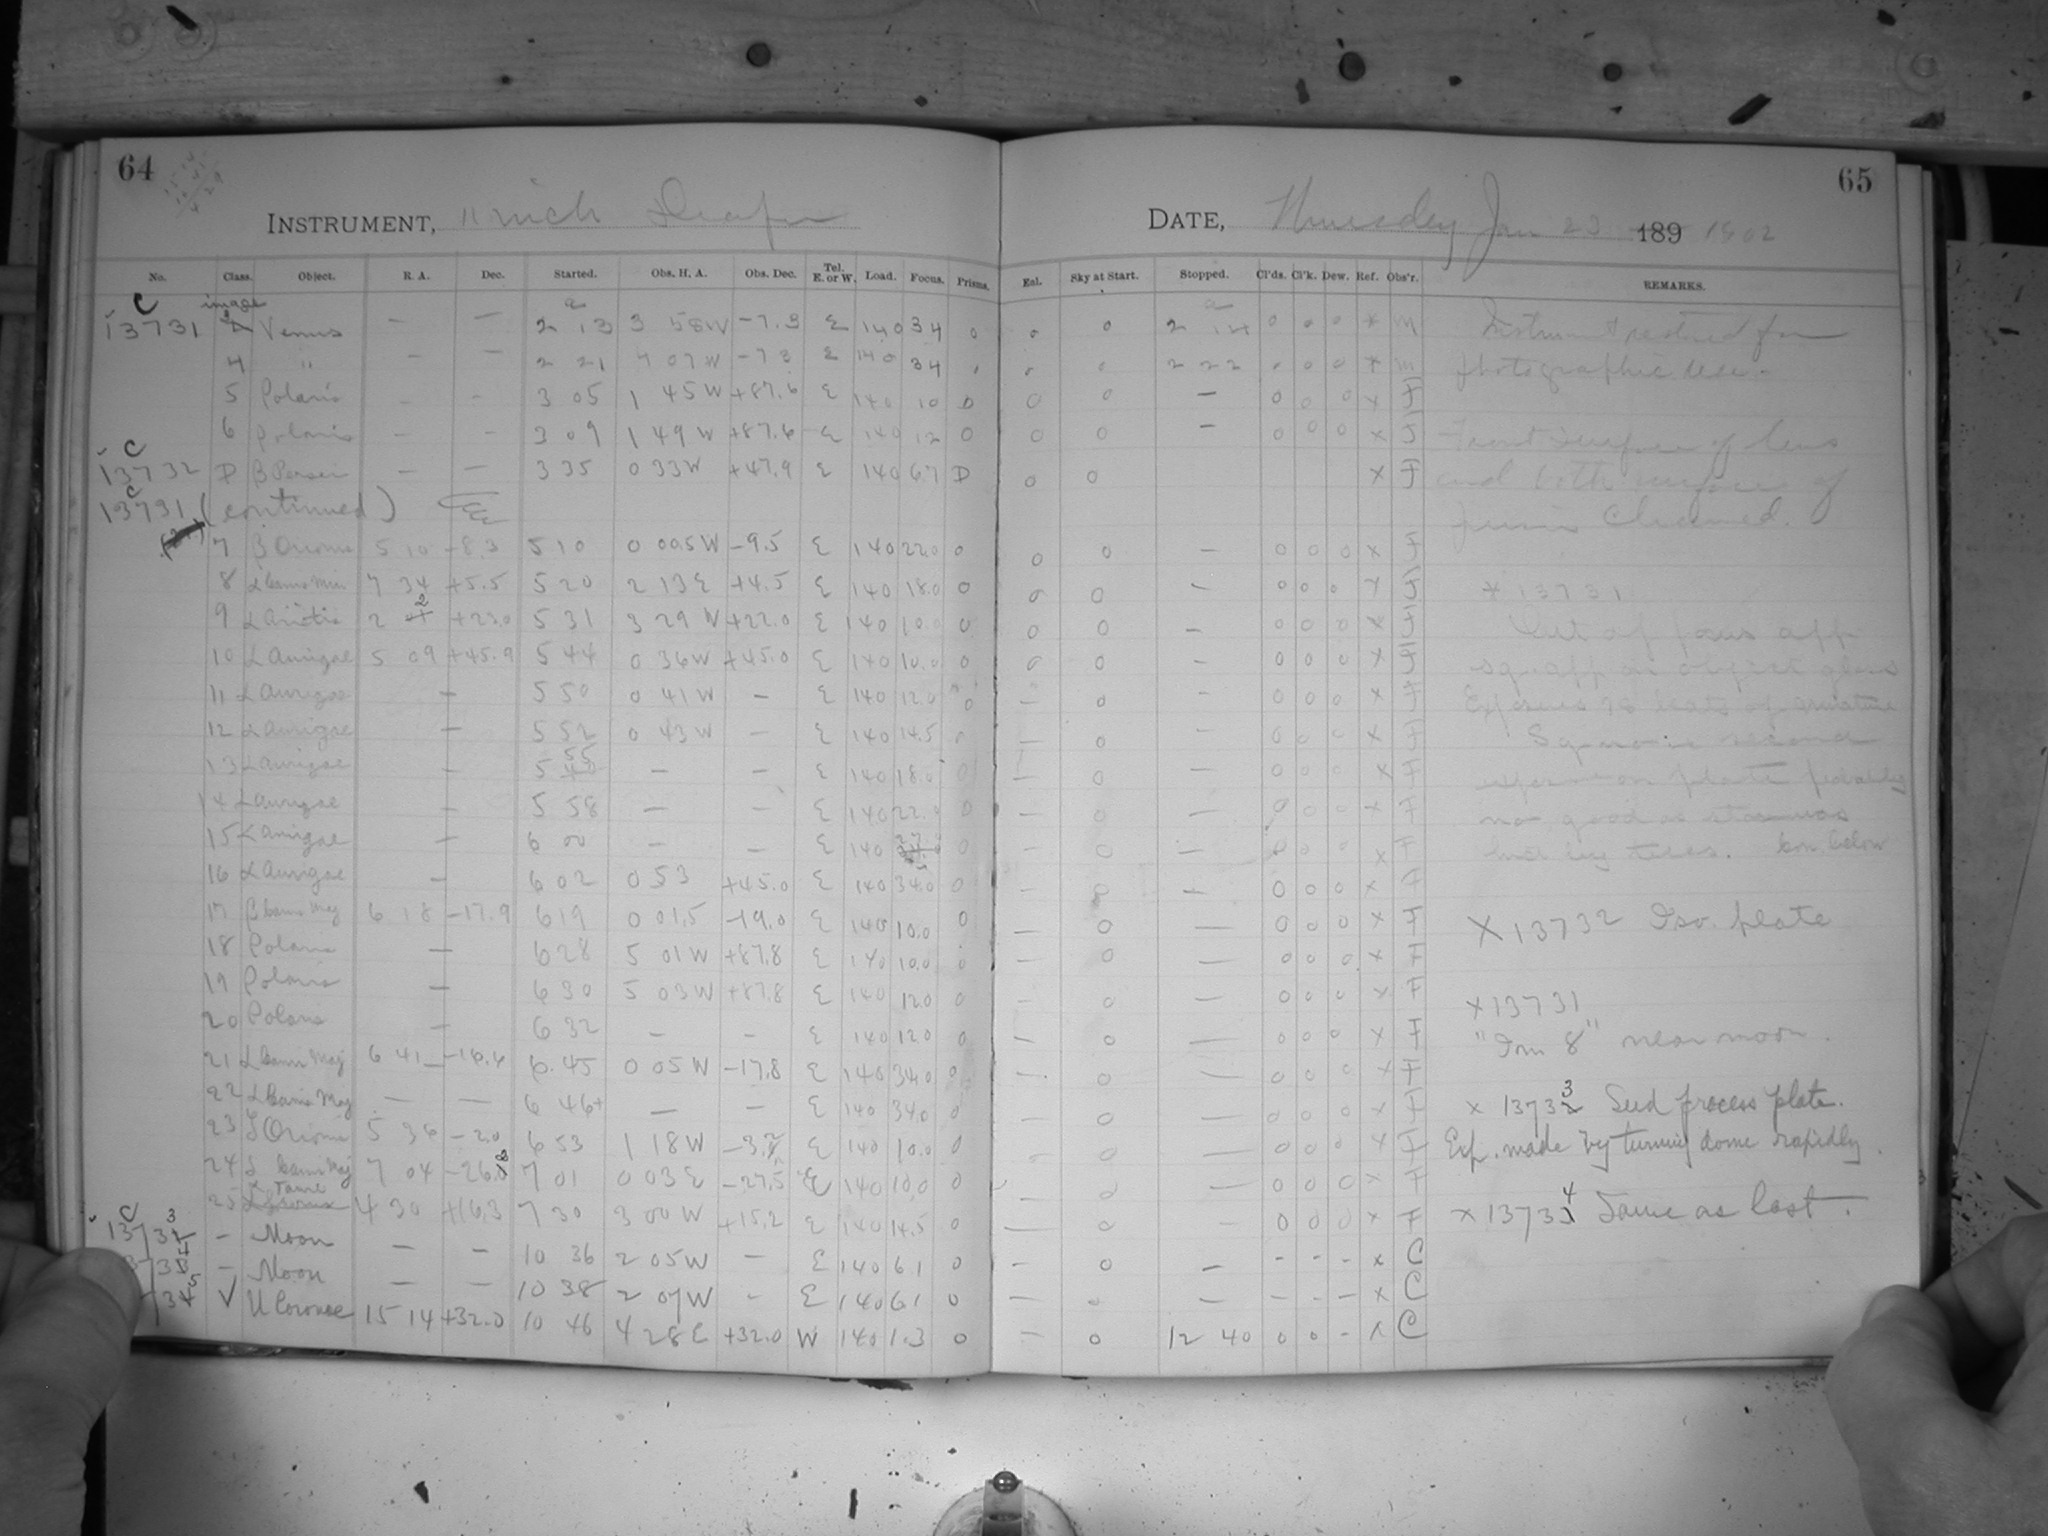 64
INSTRUMENT, 11 inch Draper
No. Class. Object. R. A. Dec. Started. Obs. H. A. Obs. Dec. Tel. E. or W. Load. Focus. Prisms.
C image a
13731 Venus — — 2 13 3 58 W -7.3 E 140 34 0
4 " — — 2 21 4 07 W -7 3 E 140 34
5 Polaris — — 3 05 1 45 W +87.6 E 140 10 0
6 Polaris — — 3 09 1 49 W +87.6 E 140 12 0
C
13732 D β Persei — — 3 35 0 33 W +47.9 E 140 67 D
C
13731 (continued)
7 β Orionis 5 10 -8.3 5 10 0 00.5 W -9.5 E 140 22.0 0
8 α Canis Min 7 34 +5.5 5 20 2 13 E +4.5 E 140 18.0 0
9 α Arietis 2 2 +23.0 5 31 3 29 W +22.0 E 140 10.0 0
10 α Aurigae 5 09 +45.9 5 44 0 36 W +45.0 E 140 10.0 0
11 α Aurigae — 5 50 0 41 W — E 140 12.0 0
12 α Aurigae — 5 52 0 43 W — E 140 14.5
13 α Aurigae — 5 55 — — E 140 18.0 0
14 α Aurigae — 5 58 — — E 140 22.0 0
15 α Aurigae — 6 00 — — E 140 0
16 α Aurigae — 6 02 0 53 +45.0 E 140 34.0 0
17 β Canis Maj 6 18 -17.9 6 19 0 01.5 -19.0 E 140 10.0 0
18 Polaris — 6 28 5 01 W +87.8 E 140 10.0 0
19 Polaris — 6 30 5 03 W +87.8 E 140 12.0 0
20 Polaris — 6 32 — — E 140 12.0 0
21 α Canis Maj 6 41 -16.6 6 45 0 05 W -17.8 E 140 34.0 0
22 α Canis Maj — — 6 46+ — — E 140 34.0 0
23 ζ Orionis 5 36 -2.0 6 53 1 18 W E 140 10.0 0
24 δ Canis Maj 7 04 7 01 0 03 E -27.5 E 140 10.0 0
25 α Tauri 4 30 +16.3 7 30 3 00 W +15.2 E 140 14.5 0
C
13733 — Moon — — 10 36 2 05 W — E 140 61 0
34 — Moon — — 10 38 2 07 W — E 140 61 0
35 V U Coronae 15 14 +32.0 10 46 4 28 E +32.0 W 140 1.3 0
65
DATE, Thursday Jan 23 189 1902
Eal. Sky at Start. Stopped. Cl'ds. Cl'k. Dew. Ref. Obs'r. REMARKS.
a
0 0 2 14 0 0 0 × M Instrument restored for
0 0 2 22 0 0 0 × M photographic use.
0 0 — 0 0 0 × F
0 0 — 0 0 0 × F Front surface of lens
0 0 × F and both surfaces of
prism cleaned.
0 0 — 0 0 0 × F
0 0 — 0 0 0 × F × 13731
0 0 — 0 0 0 × F Out of focus
0 0 — 0 0 0 × F object glass
— 0 — 0 0 0 × F Exposures 10 beats of armature
— 0 — 0 0 0 × F second
— 0 0 0 0 × F on plate probably
— 0 — 0 0 0 × F no good as star was
— 0 — 0 0 0 × F Con. below
— 0 — 0 0 0 × F
— 0 — 0 0 0 × F × 13732 Iso. plate
— 0 — 0 0 0 × F
— 0 — 0 0 0 × F × 13731
— 0 — 0 0 0 × F "Im 8" near moon.
— 0 — 0 0 0 × F
— 0 — 0 0 0 × F × 13733 Seed process plate.
— 0 — 0 0 0 × F Exp. made by turning dome rapidly.
0 — 0 0 0 × F
— 0 — 0 0 0 × F × 13734 Same as last.
0 — - - - × C
— 0 — — — — × C
— 0 12 40 0 0 - × C